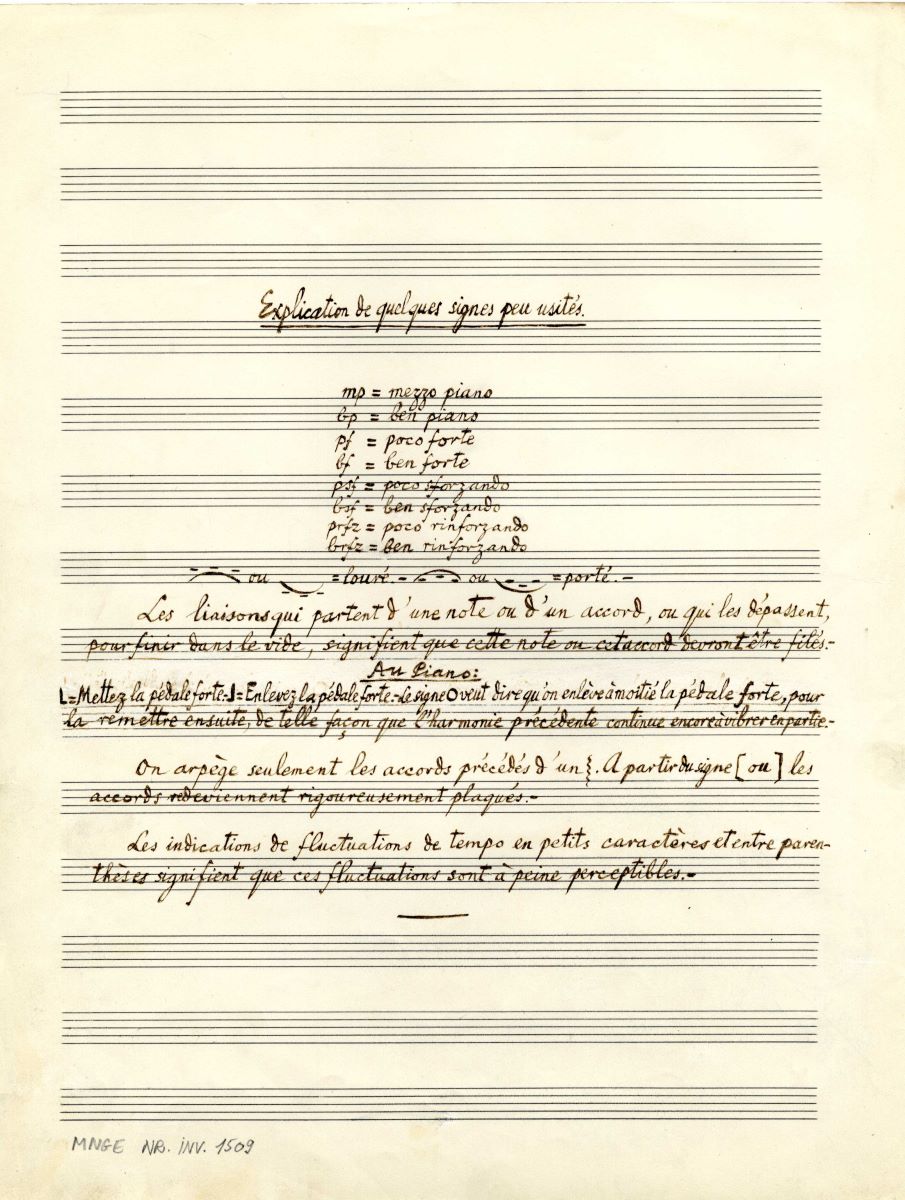 Explication de quelques signes peu usités.
mp = mezzo piano
bp = ben piano
pf = poco forte
bf = ben forte
psf = poco sforzando
bsf = ben sforzando
prfz = poco rinforzando
brfz = ben rinforzando
ou = louré. - ou = porté. -
Les liaisons qui partent d'une note ou d'un accord, ou qui les dépassent,
pour finir dans le vide, signifient que cette note ou cet accord devront être filés.-
Au Piano:
L = Mettez la pédale forte.- ⅃ = Enlevez la pédale forte.- Le signe O veut dire qu'on enlève à moitié la pédale forte, pour
la remettre ensuite, de telle façon que l'harmonie précédente continue encore à vibrer en partie.-
On arpège seulement les accords précédés d'un ⸾. A partir du signe [ou] les
accords redeviennent rigoureusement plaqués.-
Les indications de fluctuations de tempo en petits caractères et entre paren-
thèses signifient que ces fluctuations sont à peine perceptibles.-
MNGE NR. INV. 1509